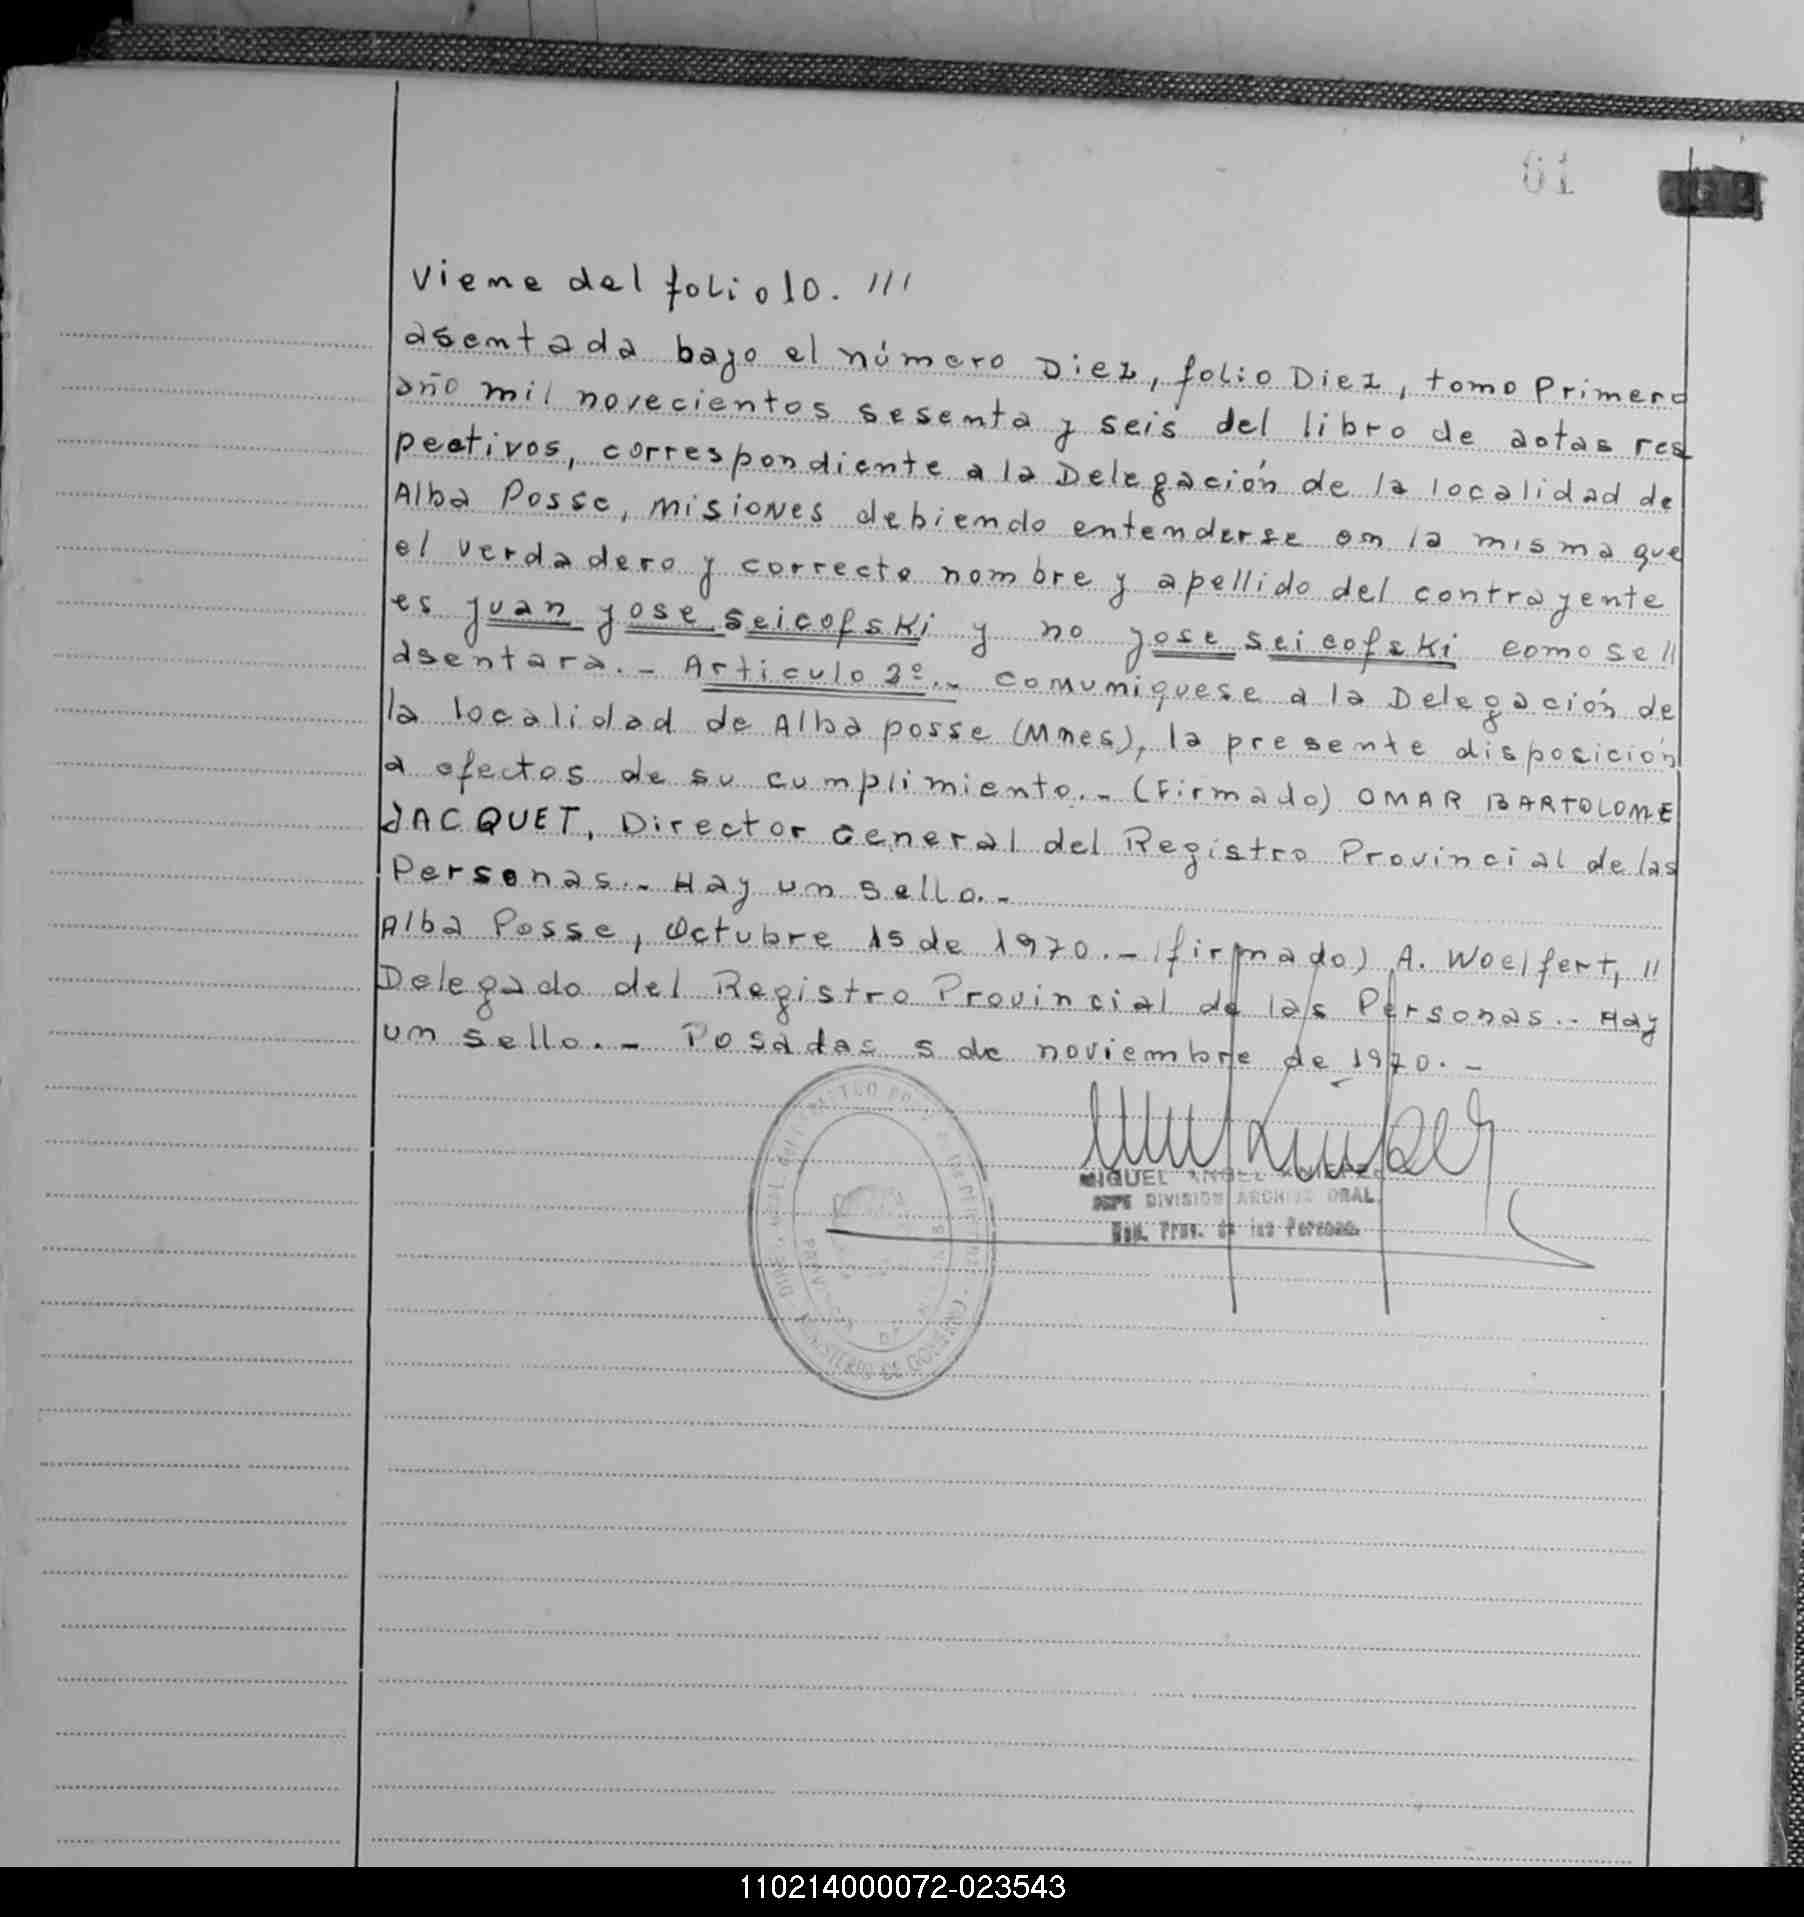 61
Viene del folio 10. ///
asentada bajo el número Diez, folio Diez, tomo Primero
año mil novecientos sesenta y seis del libro de actas res
pectivos, correspondiente a la Delegación de la localidad de
Alba Posse, misiones debiendo entenderse en la misma que
el verdadero y correcto nombre y apellido del contrayente
es juan jose seicofski y no jose seicofski como se //
asentara.- Articulo 2º.- comuniquese a la Delegación de
la localidad de Alba posse (Mnes), la presente disposición
a efectos de su cumplimiento.- (Firmado) OMAR BARTOLOME
JACQUET, Director General del Registro Provincial de las
Personas.- Hay un sello.-
Alba Posse, Octubre 15 de 1970.- (firmado) A. Woelfert, //
Delegado del Registro Provincial de las Personas.- Hay
un sello.- Posadas 5 de noviembre de 1970.-
MIGUEL ANGEL
JEFE DIVISION ARCHIVO GRAL.
Reg. Prov. de las Personas
MINISTERIO DE GOBIERNO
110214000072-023543